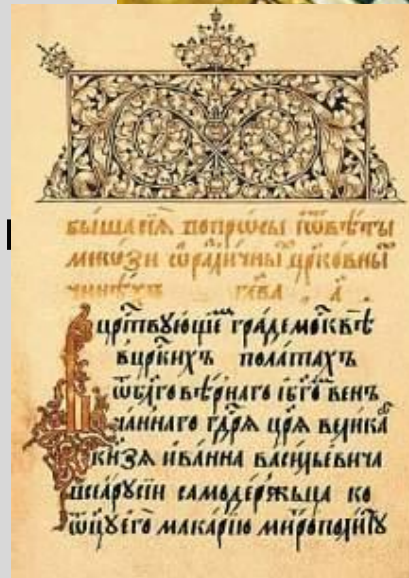 бы́ша сїѧ̀ вопро́сы и҆ ѿвѣ́ты
мно́ѕи ѡ҆ разли́чны црко́вны
чинѣ́хъ гла́ва а҃
црⷭ҇твꙋющїе гра́де москвѣ̀
в црⷭ҇кихъ пола́тахъ
ѿ бл҃говѣ́рнаго и҆ бг҃о вѣн
ча́ннаго гдⷭ҇рѧ цр҃ѧ̀ вели́каⷢ҇
кнѧ́ꙁѧ и҆ва́нна васи́льевича
всеѧ̀ рꙋсі́и самоде́ржьца ко
ѻ҆тцꙋ̀ є҆го̀ мака́рїю митрополи́тꙋ